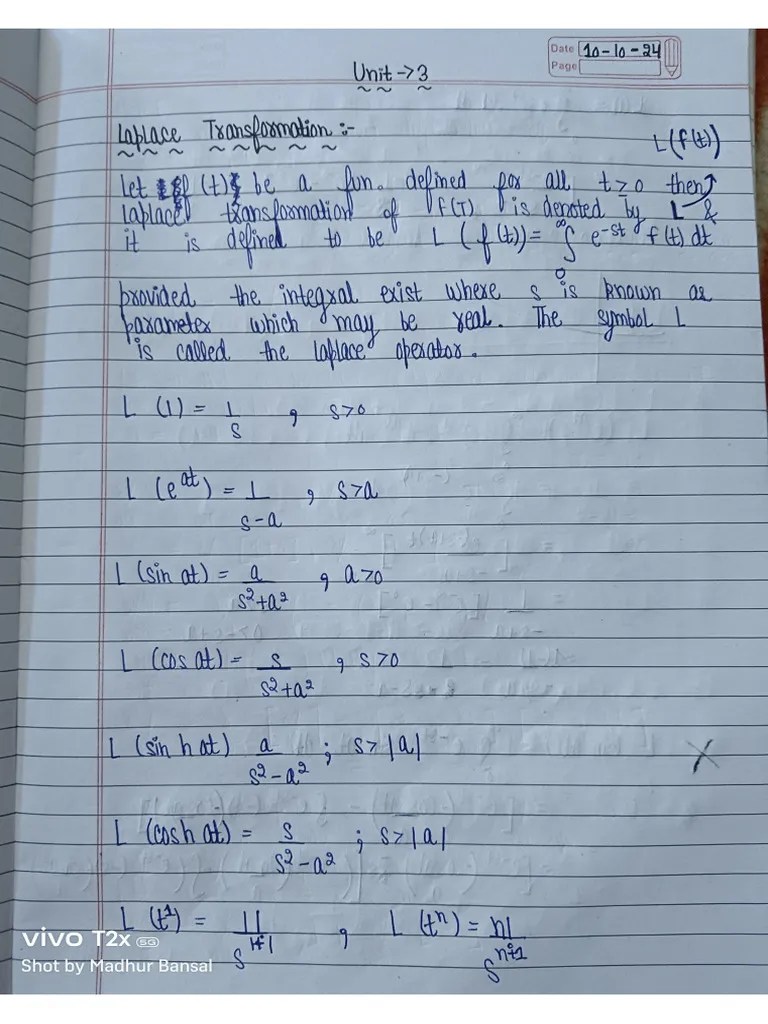 Date 10-10-24
Page
Unit → 3
Laplace Transformation :-
L(f(t))
Let f(t) be a fun. defined for all t>0 then
laplace transformation of f(T) is denoted by L &
it is defined to be L (f(t)) = ∫₀^∞ e^-st f(t) dt
provided the integral exist where s is known as
parameter which may be real. The symbol L
is called the laplace operator.
L (1) = 1/s , s>0
L (e^at) = 1/(s-a) , s>a
L (sin at) = a/(s²+a²) , a>0
L (cos at) = s/(s²+a²) , s>0
L (sin h at) a/(s²-a²) ; s>|a|
X
L (cosh at) = s/(s²-a²) ; s>|a|
L (t¹) = 1!/s^(1+1) , L (tⁿ) = n!/s^(n+1)
vivo T2x 5G
Shot by Madhur Bansal